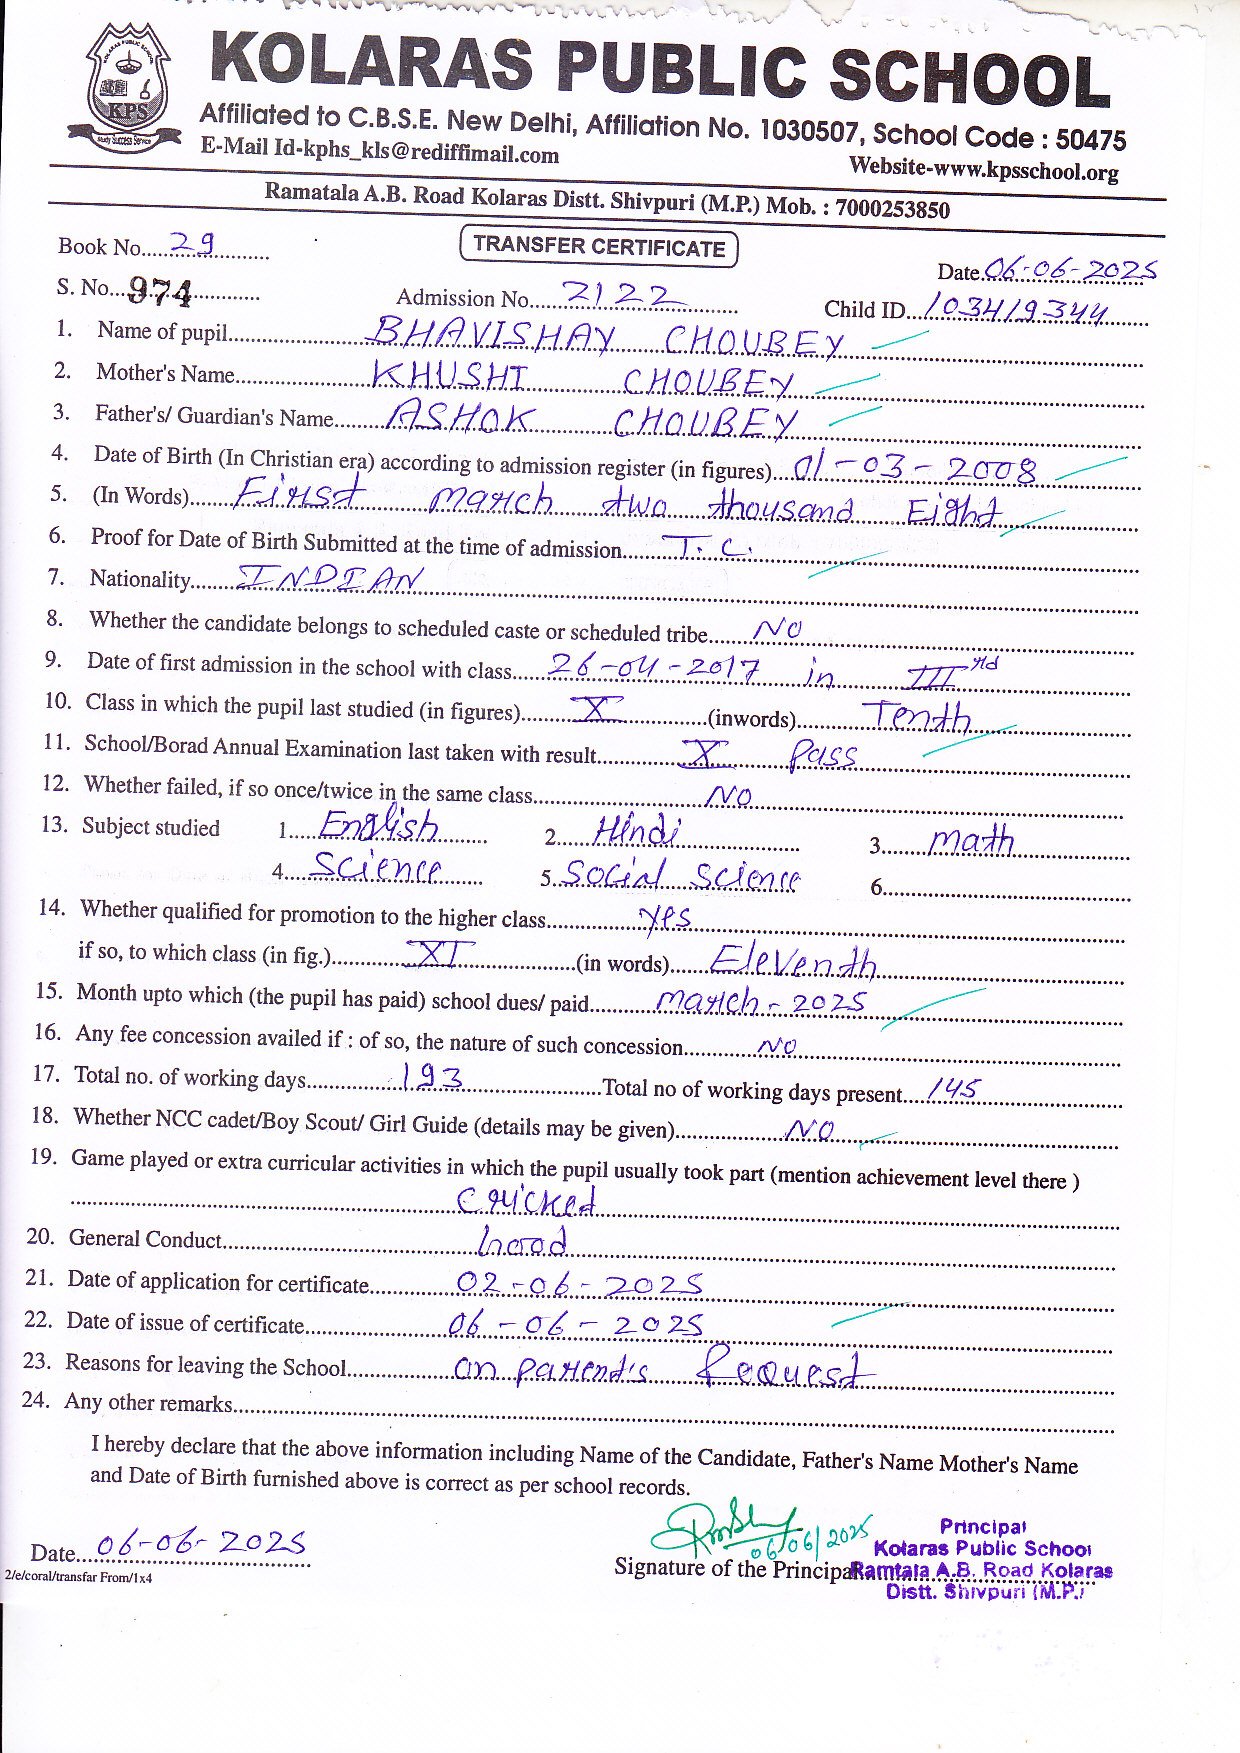 KOLARAS PUBLIC SCHOOL
KPS
Study Success Service
Affiliated to C.B.S.E. New Delhi, Affiliation No. 1030507, School Code : 50475
E-Mail Id-kphs_kls@rediffimail.com
Website-www.kpsschool.org
Ramatala A.B. Road Kolaras Distt. Shivpuri (M.P.) Mob. : 7000253850
Book No....29
TRANSFER CERTIFICATE
Date 06-06-2025
S. No...974
Admission No.....2122
Child ID...103419344
1. Name of pupil BHAVISHAY CHOUBEY
2. Mother's Name KHUSHI CHOUBEY
3. Father's/ Guardian's Name ASHOK CHOUBEY
4. Date of Birth (In Christian era) according to admission register (in figures) 01-03-2008
5. (In Words) First march two thousand Eight
6. Proof for Date of Birth Submitted at the time of admission T.C.
7. Nationality INDIAN
8. Whether the candidate belongs to scheduled caste or scheduled tribe NO
9. Date of first admission in the school with class 26-04-2017 in IIIrd
10. Class in which the pupil last studied (in figures) X (inwords) Tenth
11. School/Borad Annual Examination last taken with result X Pass
12. Whether failed, if so once/twice in the same class NO
13. Subject studied 1. English 2. Hindi 3. math
4. Science 5. Social Science 6.
14. Whether qualified for promotion to the higher class yes
if so, to which class (in fig.) XI (in words) Eleventh
15. Month upto which (the pupil has paid) school dues/ paid march - 2025
16. Any fee concession availed if : of so, the nature of such concession NO
17. Total no. of working days 193 Total no of working days present 145
18. Whether NCC cadet/Boy Scout/ Girl Guide (details may be given) NO
19. Game played or extra curricular activities in which the pupil usually took part (mention achievement level there )
Cricket
20. General Conduct Good
21. Date of application for certificate 02-06-2025
22. Date of issue of certificate 06-06-2025
23. Reasons for leaving the School on parent's Request
24. Any other remarks
I hereby declare that the above information including Name of the Candidate, Father's Name Mother's Name
and Date of Birth furnished above is correct as per school records.
Date 06-06-2025
06/06/2025
Signature of the Principal
Principal
Kolaras Public School
Ramtala A.B. Road Kolaras
Distt. Shivpuri (M.P.)
2/e/coral/transfar From/1x4